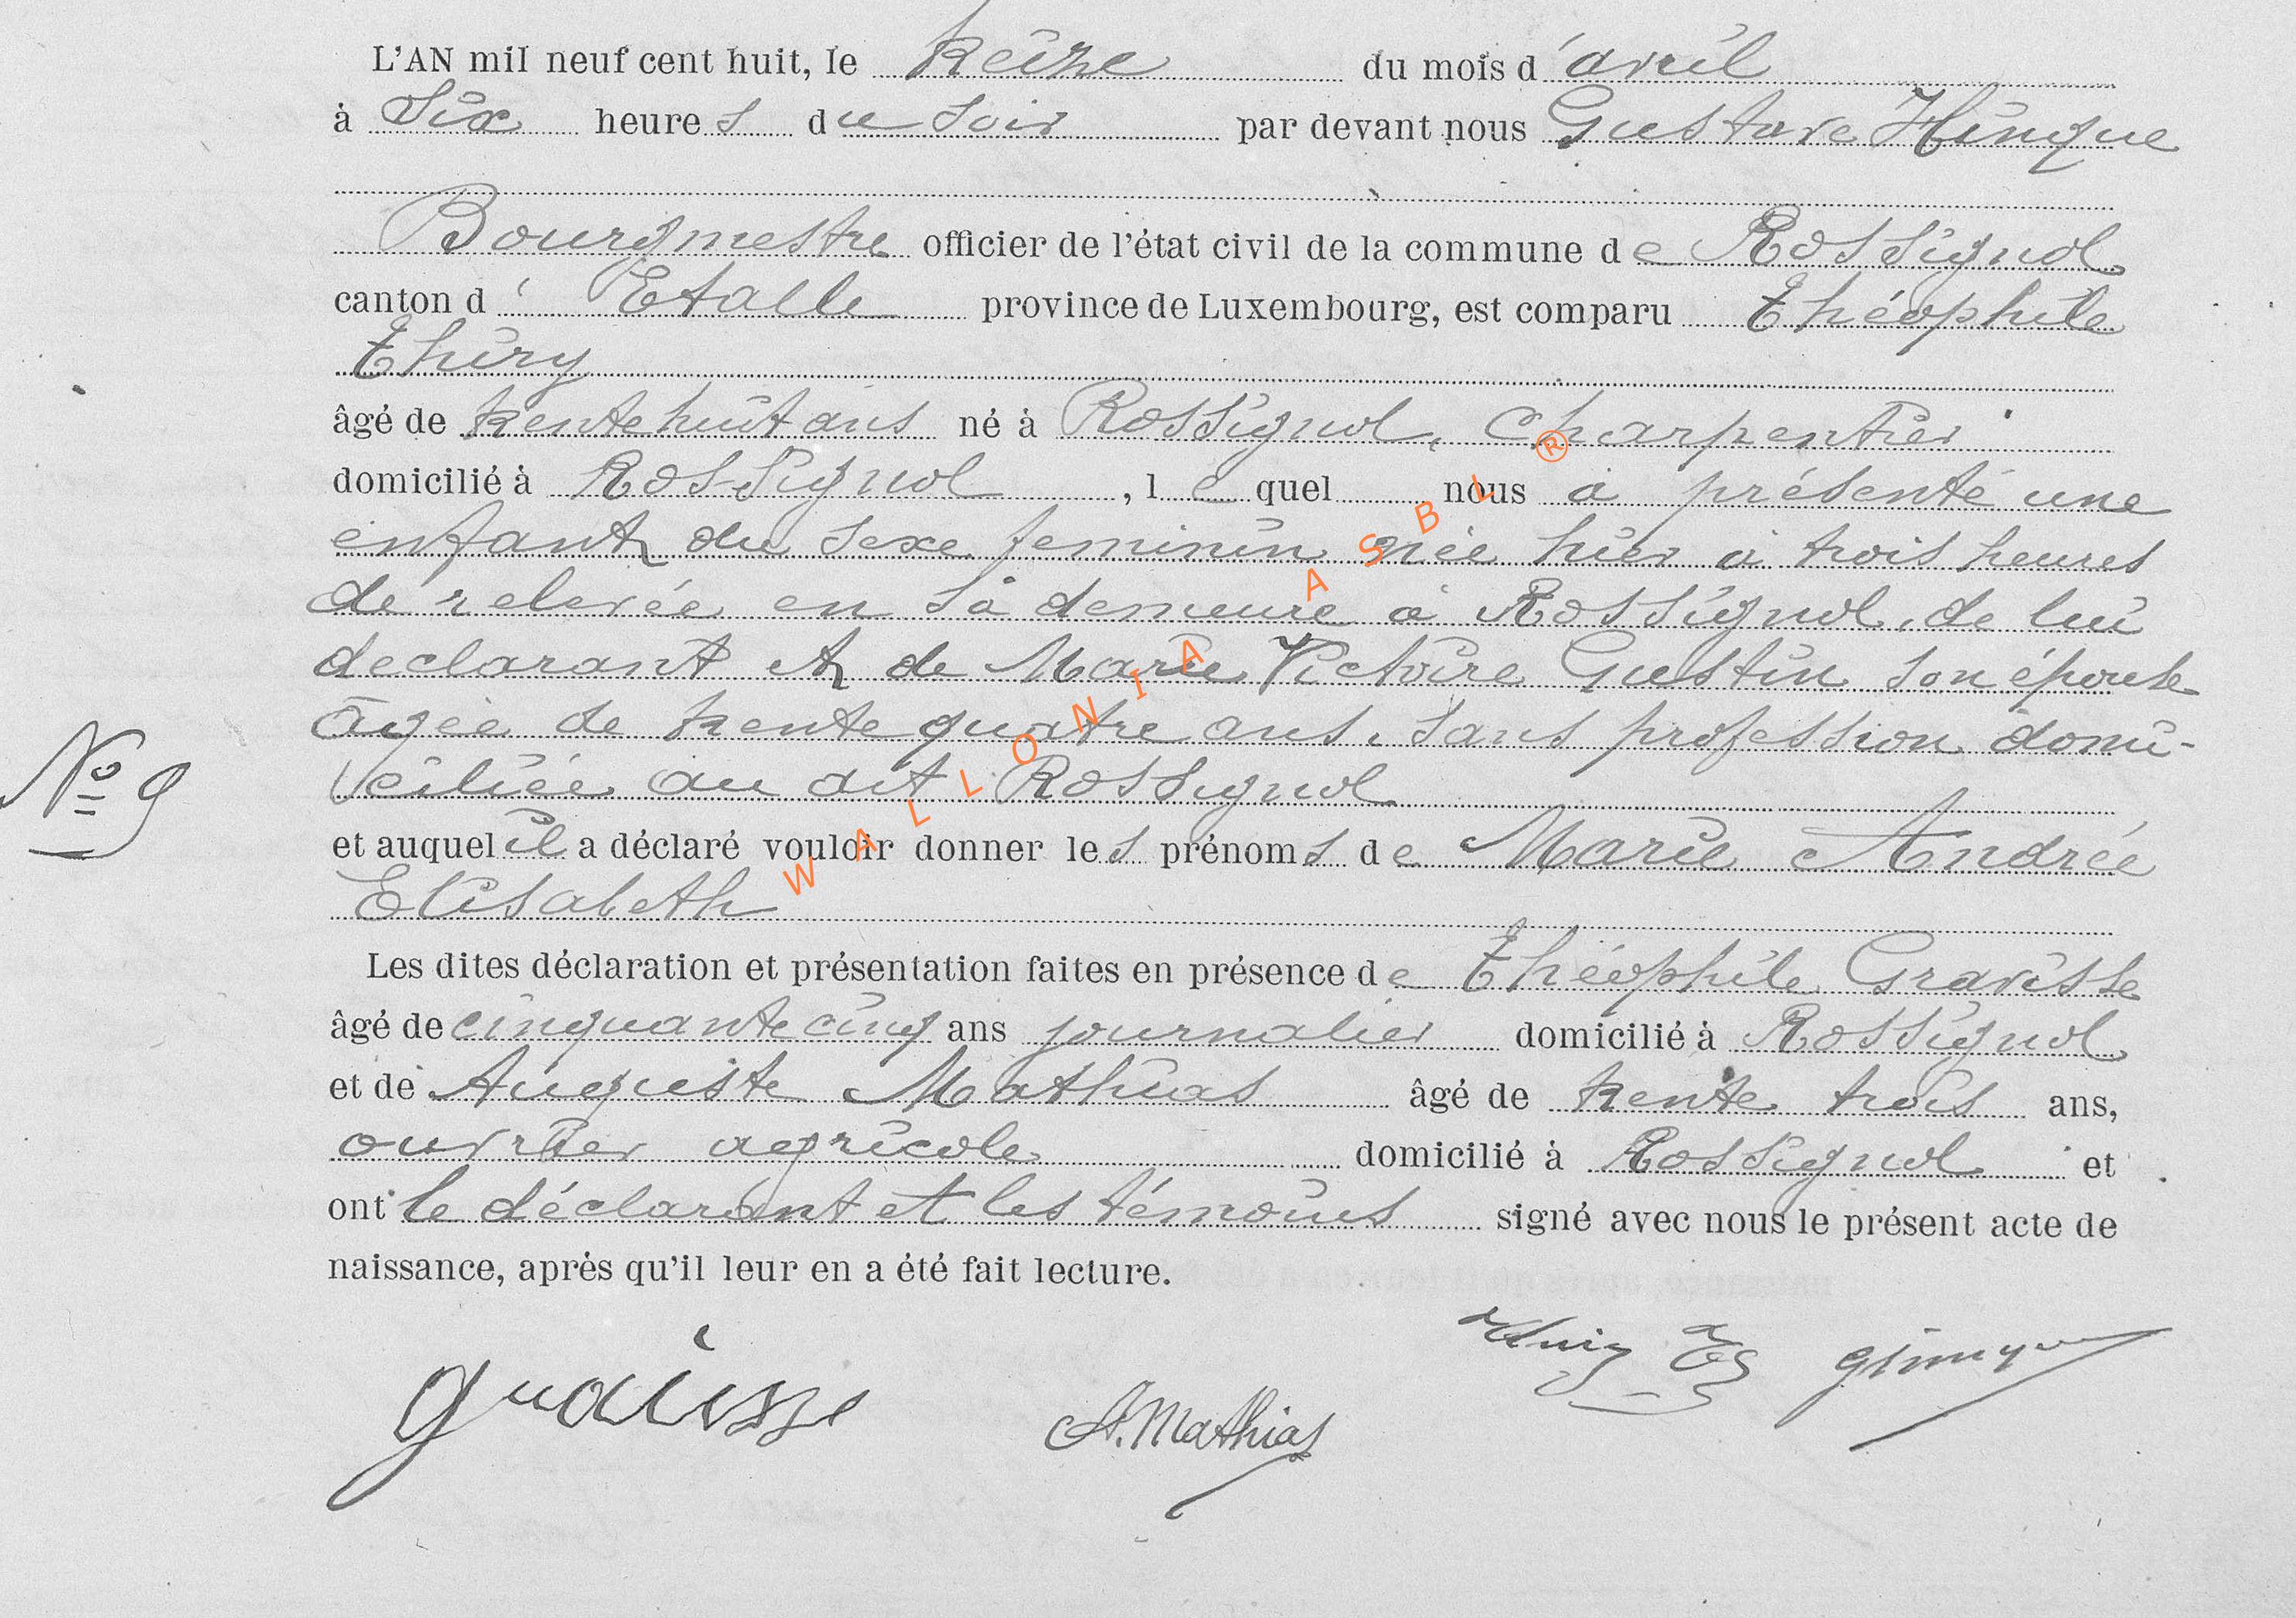 L'AN mil neuf cent huit, le treize du mois d'avril
à Six heures du soir par devant nous Gustave Hinque
Bourgmestre officier de l'état civil de la commune de Rossignol
canton d'Etalle province de Luxembourg, est comparu Théophile
Thiry
âgé de trente huit ans né à Rossignol, Charpentier
domicilié à Rossignol, lequel nous a présenté une
enfant du sexe feminin née hier à trois heures
de relevée en sa demeure à Rossignol, de lui
declarant et de Marie Victoire Gustin son épouse
âgée de trente quatre ans, sans profession domi-
ciliée au dit Rossignol
N° 9
et auquel il a déclaré vouloir donner les prénoms de Marie Andrée
Elisabeth
Les dites déclaration et présentation faites en présence de Théophile Gravisse
âgé de cinquante cinq ans journalier domicilié à Rossignol
et de Auguste Mathias âgé de trente trois ans,
ouvrier agricole domicilié à Rossignol et
ont le déclarant et les témoins signé avec nous le présent acte de
naissance, après qu'il leur en a été fait lecture.
A. Mathias
WALLONIA ASBL ®